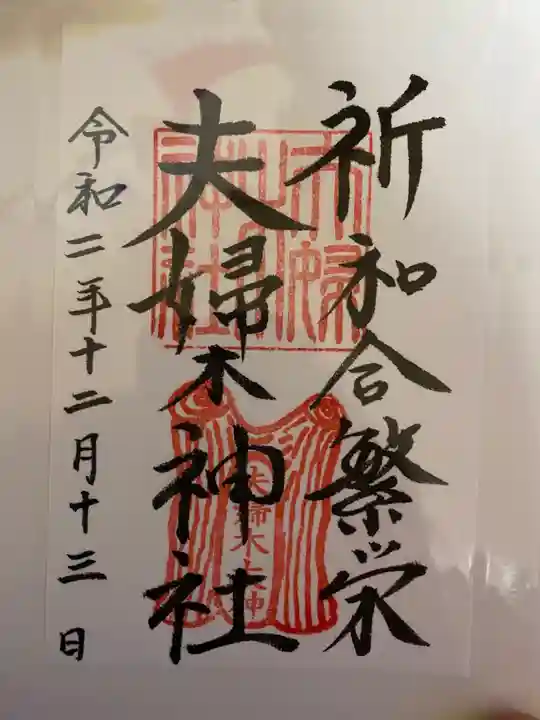 祈和合繁栄
夫婦木神社
令和二年十二月十三日
夫婦木神社
夫婦木大神